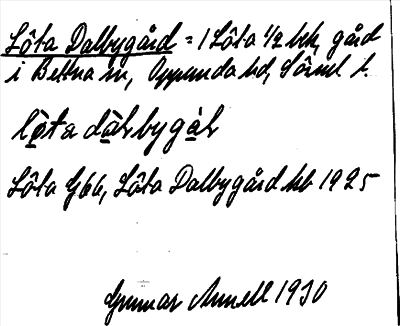 Löta Dalbygård = 1 Löta 1/2 bek, gård
i Bettna sn, Oppunda hd, Söd­ml l.
löta dàlbygàl
Löta G66, Löta Dalbygård kb 1925
Gunnar Annell 1930